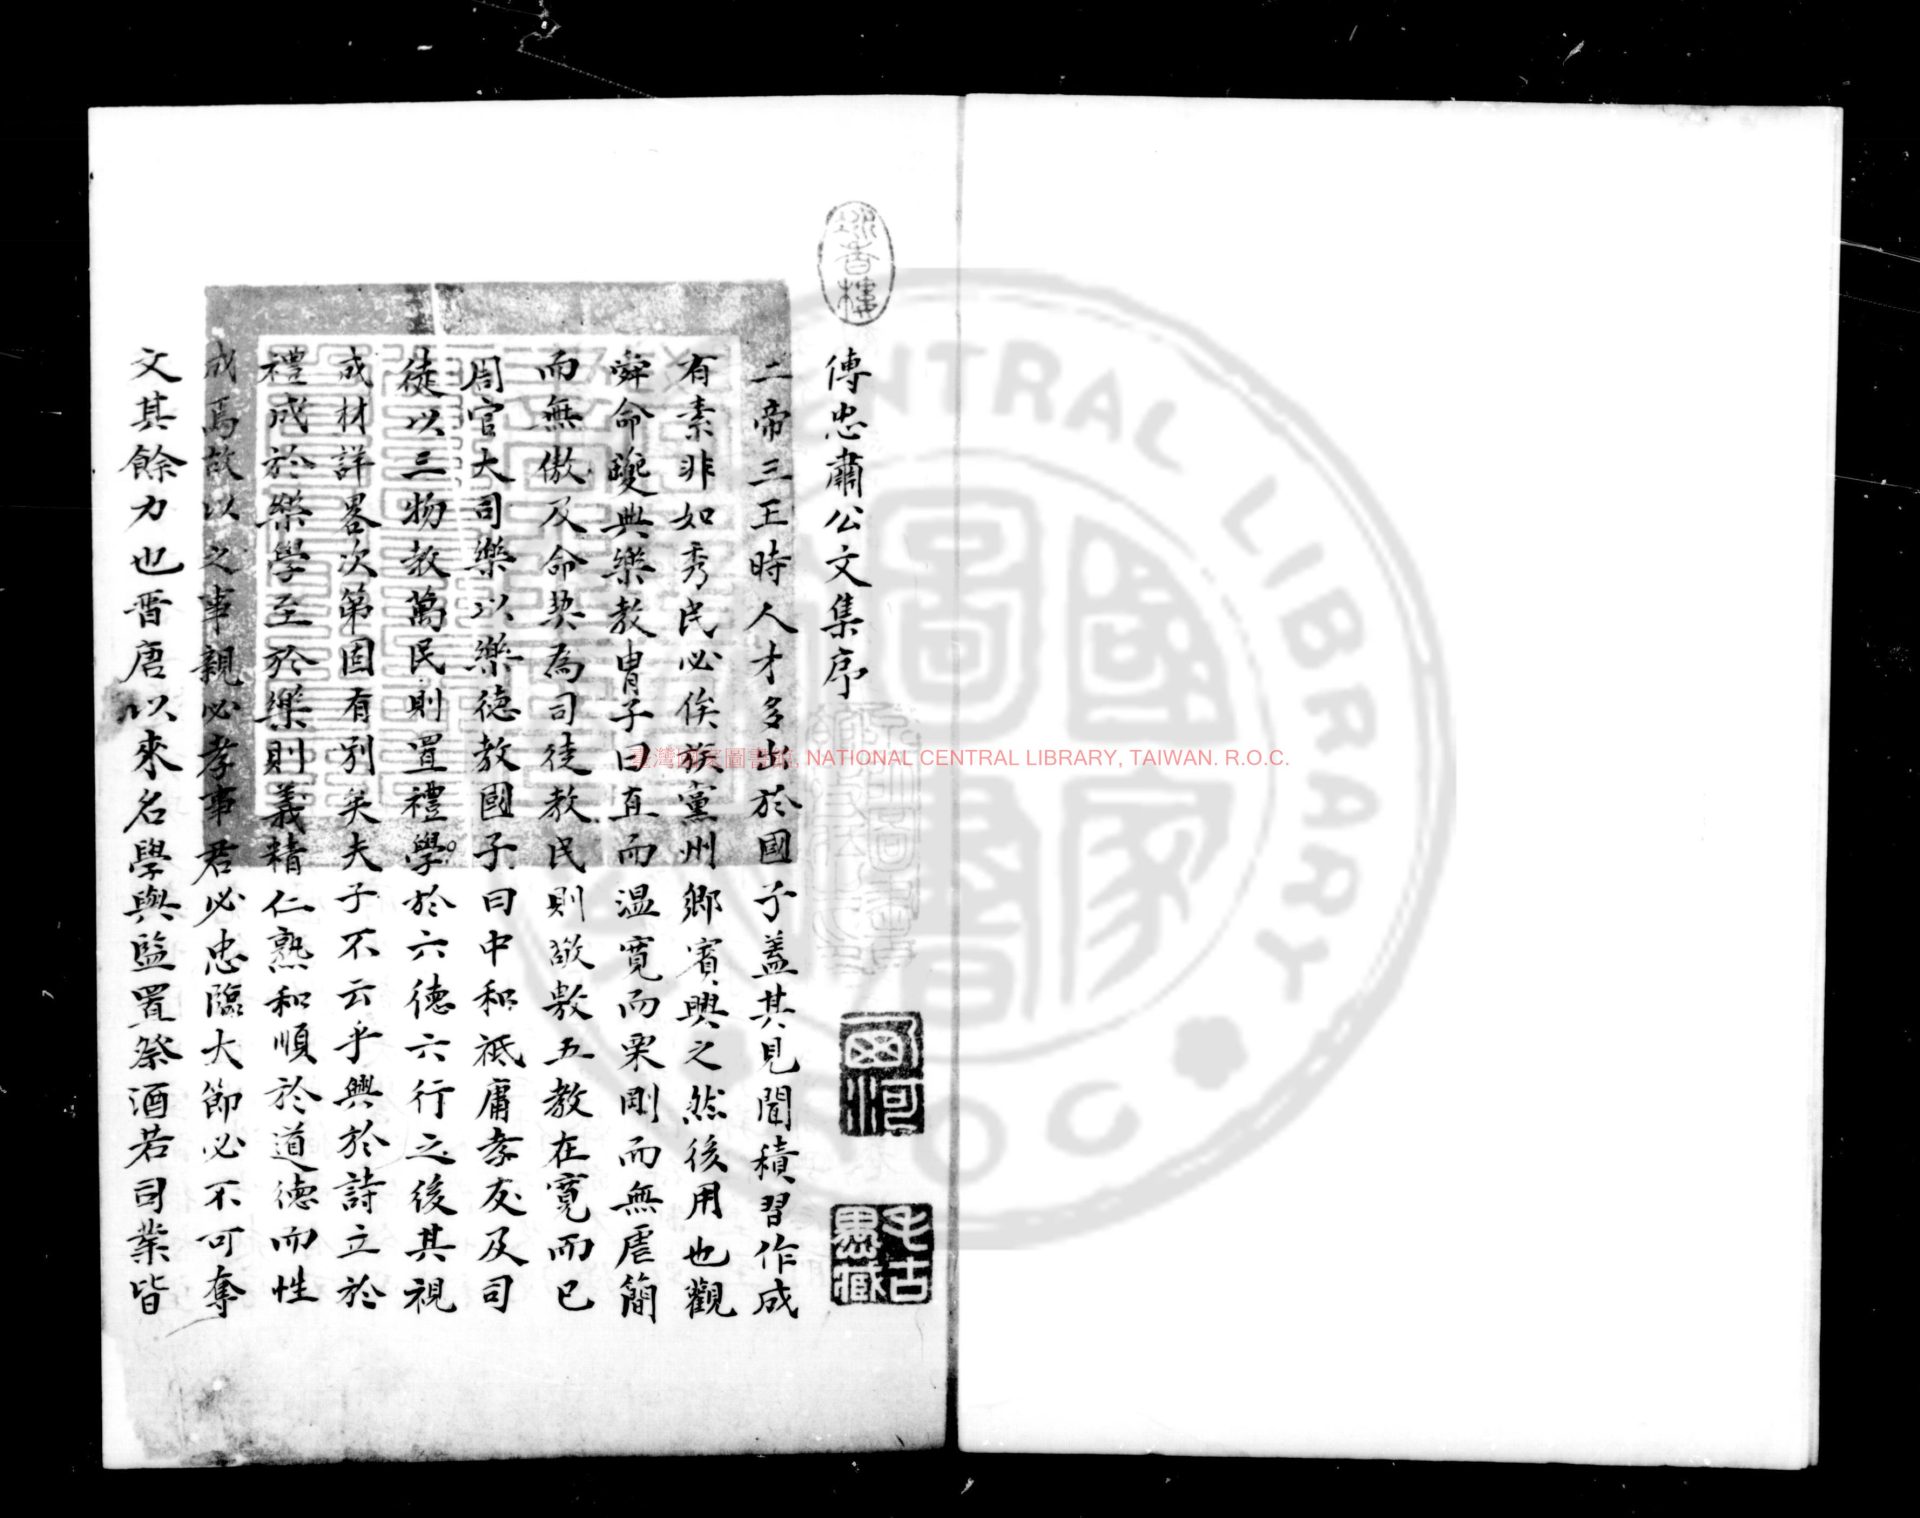 傳忠肅公文集序
二帝三王時人才多出於國子蓋其見聞積習作成
有素非如秀民必俟族黨州鄉賓興之然後用也觀
舜命夔典樂教冑子曰直而温寬而栗剛而無虐簡
而無傲及命契為司徒教民則敬敷五教在寬而已
周官大司樂以樂德教國子曰中和祗庸孝友及司
徒以三物教萬民則置禮學於六德六行之後其視
成材詳畧次第固有別矣夫子不云乎興於詩立於
禮成於樂學至於樂則義精仁熟和順於道德而性
成焉故以之事親必孝事君必忠臨大節必不可奪
文其餘力也晋唐以來名學與監置祭酒若司業皆
西河
毛古愚藏
臺灣國家圖書館, NATIONAL CENTRAL LIBRARY, TAIWAN. R.O.C.
國家圖書
CENTRAL LIBRARY
R.O.C.